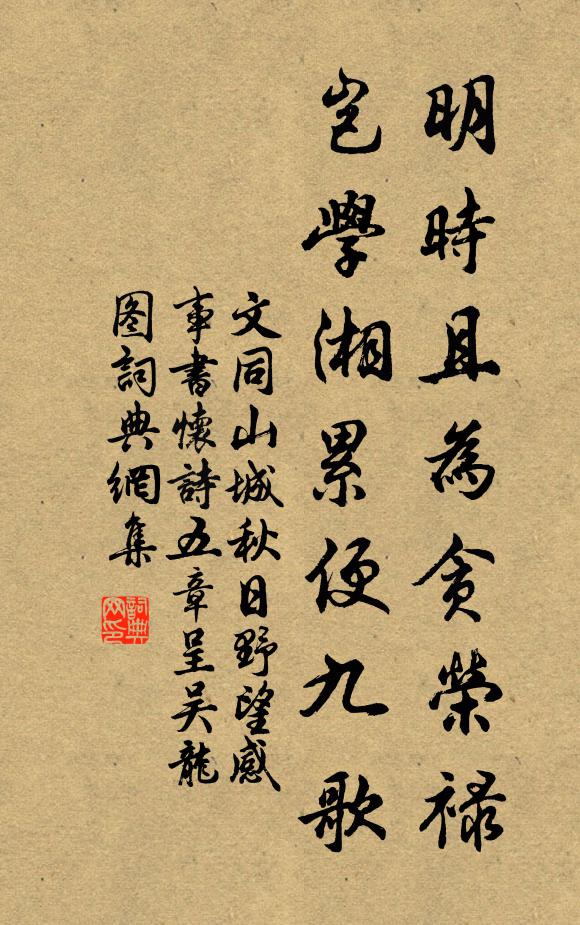 明時且為貪榮禄
豈學湘累便九歌
文同山城秋日野望感
事書懷詩五章呈吴龍
图詞典網集
詞典
网印